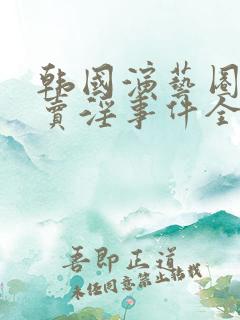 韩国演艺圈
卖淫事件全
吾即正道
未经同意禁止转载